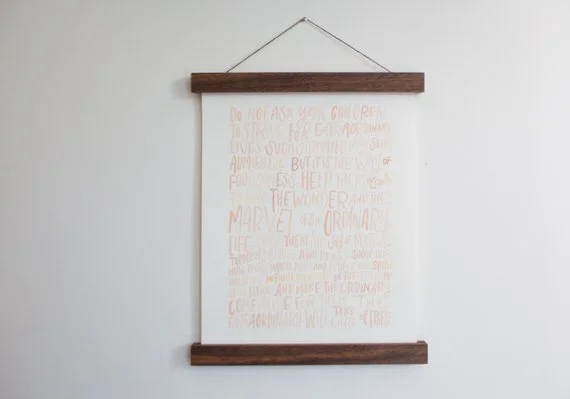 DO NOT ASK YOUR CHILDREN
TO STRIVE FOR EXTRAORDINARY
LIVES SUCH STRIVING MAY SEEM
ADMIRABLE BUT IT IS THE WAY OF
FOOLISHNESS HELP THEM INSTEAD
TO THE WONDER AND THE
MARVEL OF AN ORDINARY
LIFE THEM THE JOY OF TASTING
TOMATOES AND PEARS SHOW THEM
HOW WHEN PETS AND PEOPLE DIE SHOW
INFINITE IN THE
OF A HAND AND MAKE THE ORDINARY
COME ALIVE FOR THEM THE
EXTRAORDINARY WILL TAKE OF ITSELF